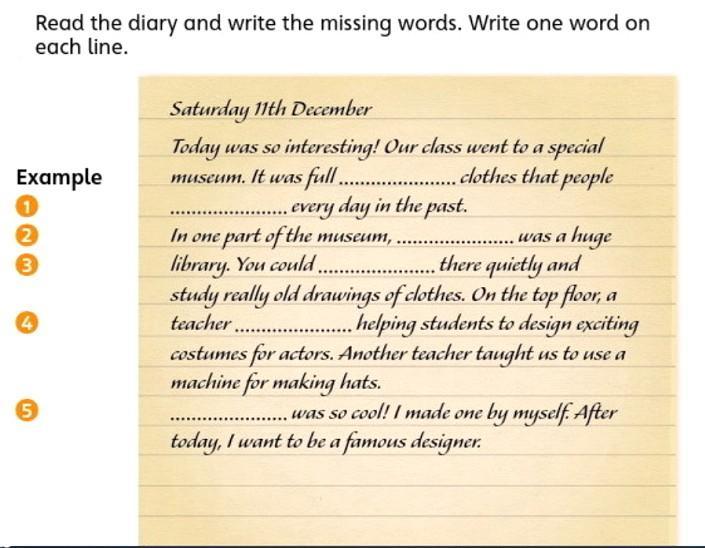 Read the diary and write the missing words. Write one word on
each line.
Saturday 11th December
Today was so interesting! Our class went to a special
Example museum. It was full ...................... clothes that people
1 ...................... every day in the past.
2 In one part of the museum, ...................... was a huge
3 library. You could ...................... there quietly and
study really old drawings of clothes. On the top floor, a
4 teacher ...................... helping students to design exciting
costumes for actors. Another teacher taught us to use a
machine for making hats.
5 ...................... was so cool! I made one by myself. After
today, I want to be a famous designer.